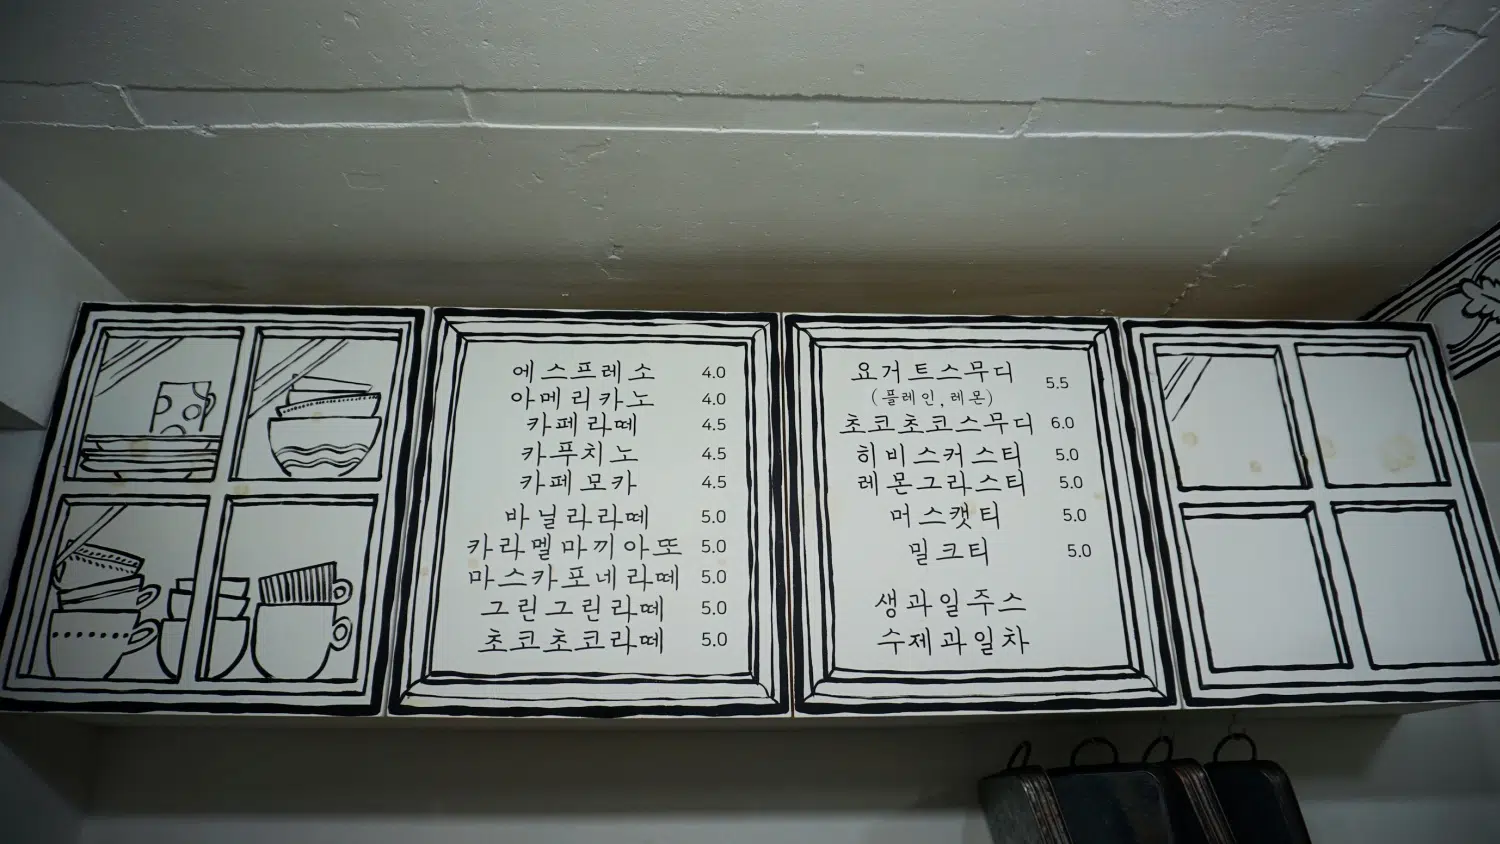 에스프레소 4.0
아메리카노 4.0
카페라떼 4.5
카푸치노 4.5
카페모카 4.5
바닐라라떼 5.0
카라멜마끼아또 5.0
마스카포네라떼 5.0
그린그린라떼 5.0
초코초코라떼 5.0
요거트스무디 5.5
(플레인, 레몬)
초코초코스무디 6.0
히비스커스티 5.0
레몬그라스티 5.0
머스캣티 5.0
밀크티 5.0
생과일주스
수제과일차